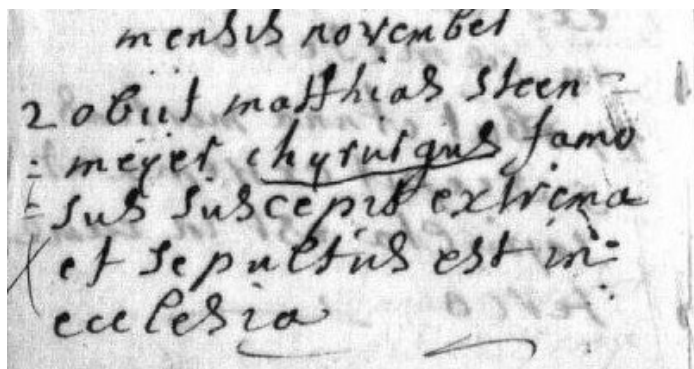 mensis november
2 obiit matthias steen=
=meyer chyrurgus famo
=sus suscepit extrema
et sepultus est in
ecclesia